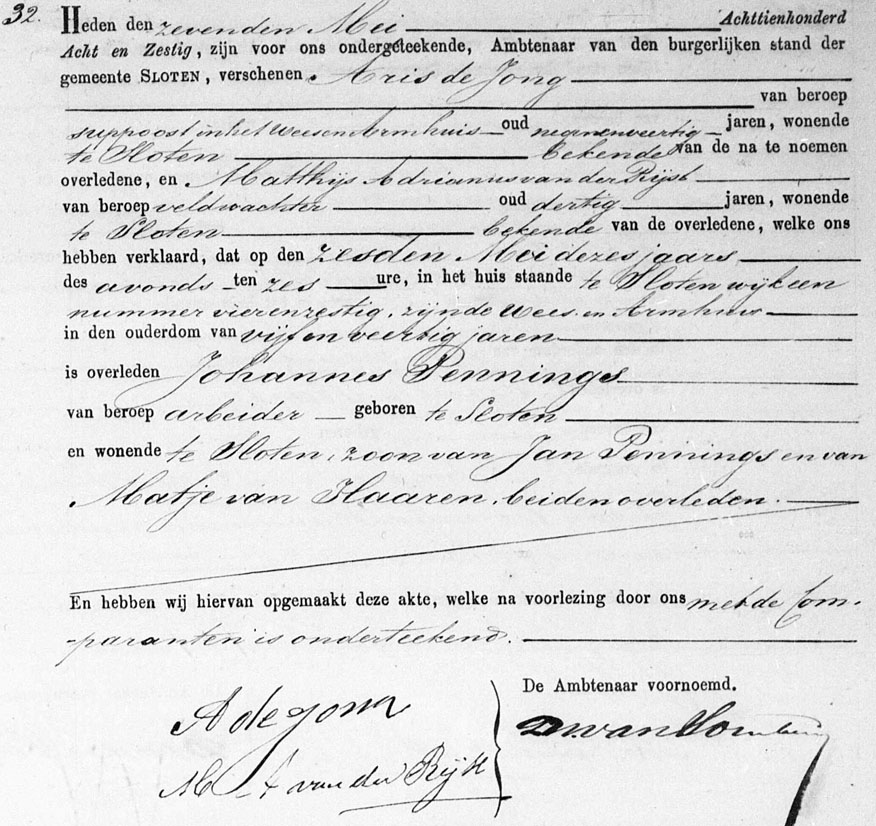 32. Heden den zevenden Mei Achttienhonderd
Acht en Zestig, zijn voor ons ondergeteekende, Ambtenaar van den burgerlijken stand der
gemeente SLOTEN, verschenen Aris de Jong
van beroep
suppoost in het Weesen Armhuis oud negenenveertig jaren, wonende
te Sloten bekende van de na te noemen
overledene, en Matthijs Adrianus van der Rijst
van beroep veldwachter oud dertig jaren, wonende
te Sloten bekende van de overledene, welke ons
hebben verklaard, dat op den zesden Mei dezes jaars
des avonds ten zes ure, in het huis staande te Sloten wijk een
nummer vierenzestig, zijnde Wees en Armhuis
in den ouderdom van vijf en veertig jaren
is overleden Johannes Pennings
van beroep arbeider geboren te Sloten
en wonende te Sloten, zoon van Jan Pennings en van
Matje van Haaren, beiden overleden.
En hebben wij hiervan opgemaakt deze akte, welke na voorlezing door ons met de Com-
-paranten is onderteekend.
De Ambtenaar voornoemd.
A de Jong
M A van der Rijst